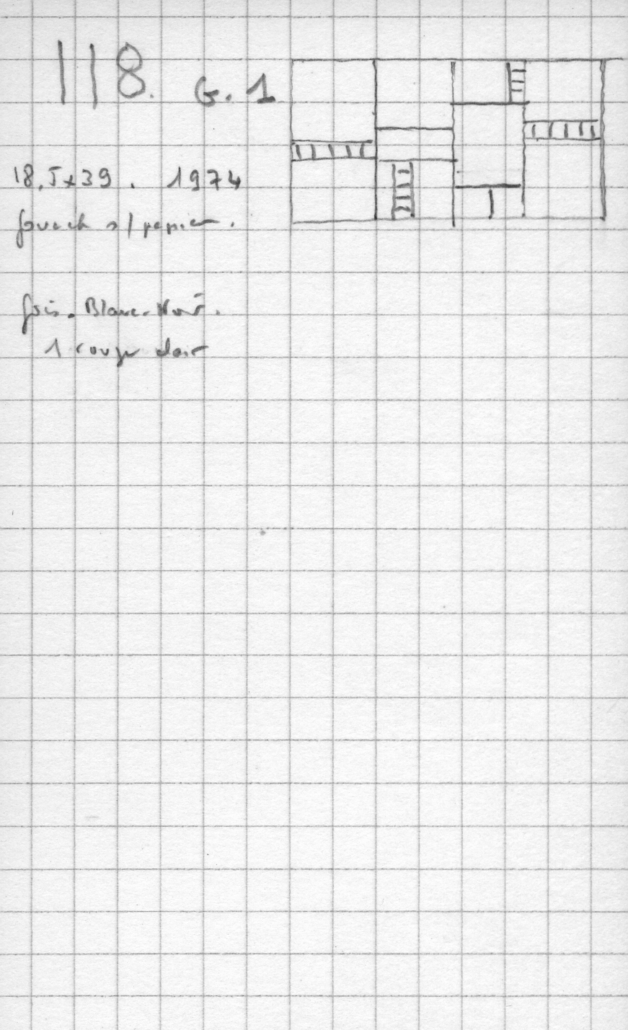 118. G.1
18,5x39. 1974
gouach s/papier.
gris. Blanc-Noir.
1 rouge clair